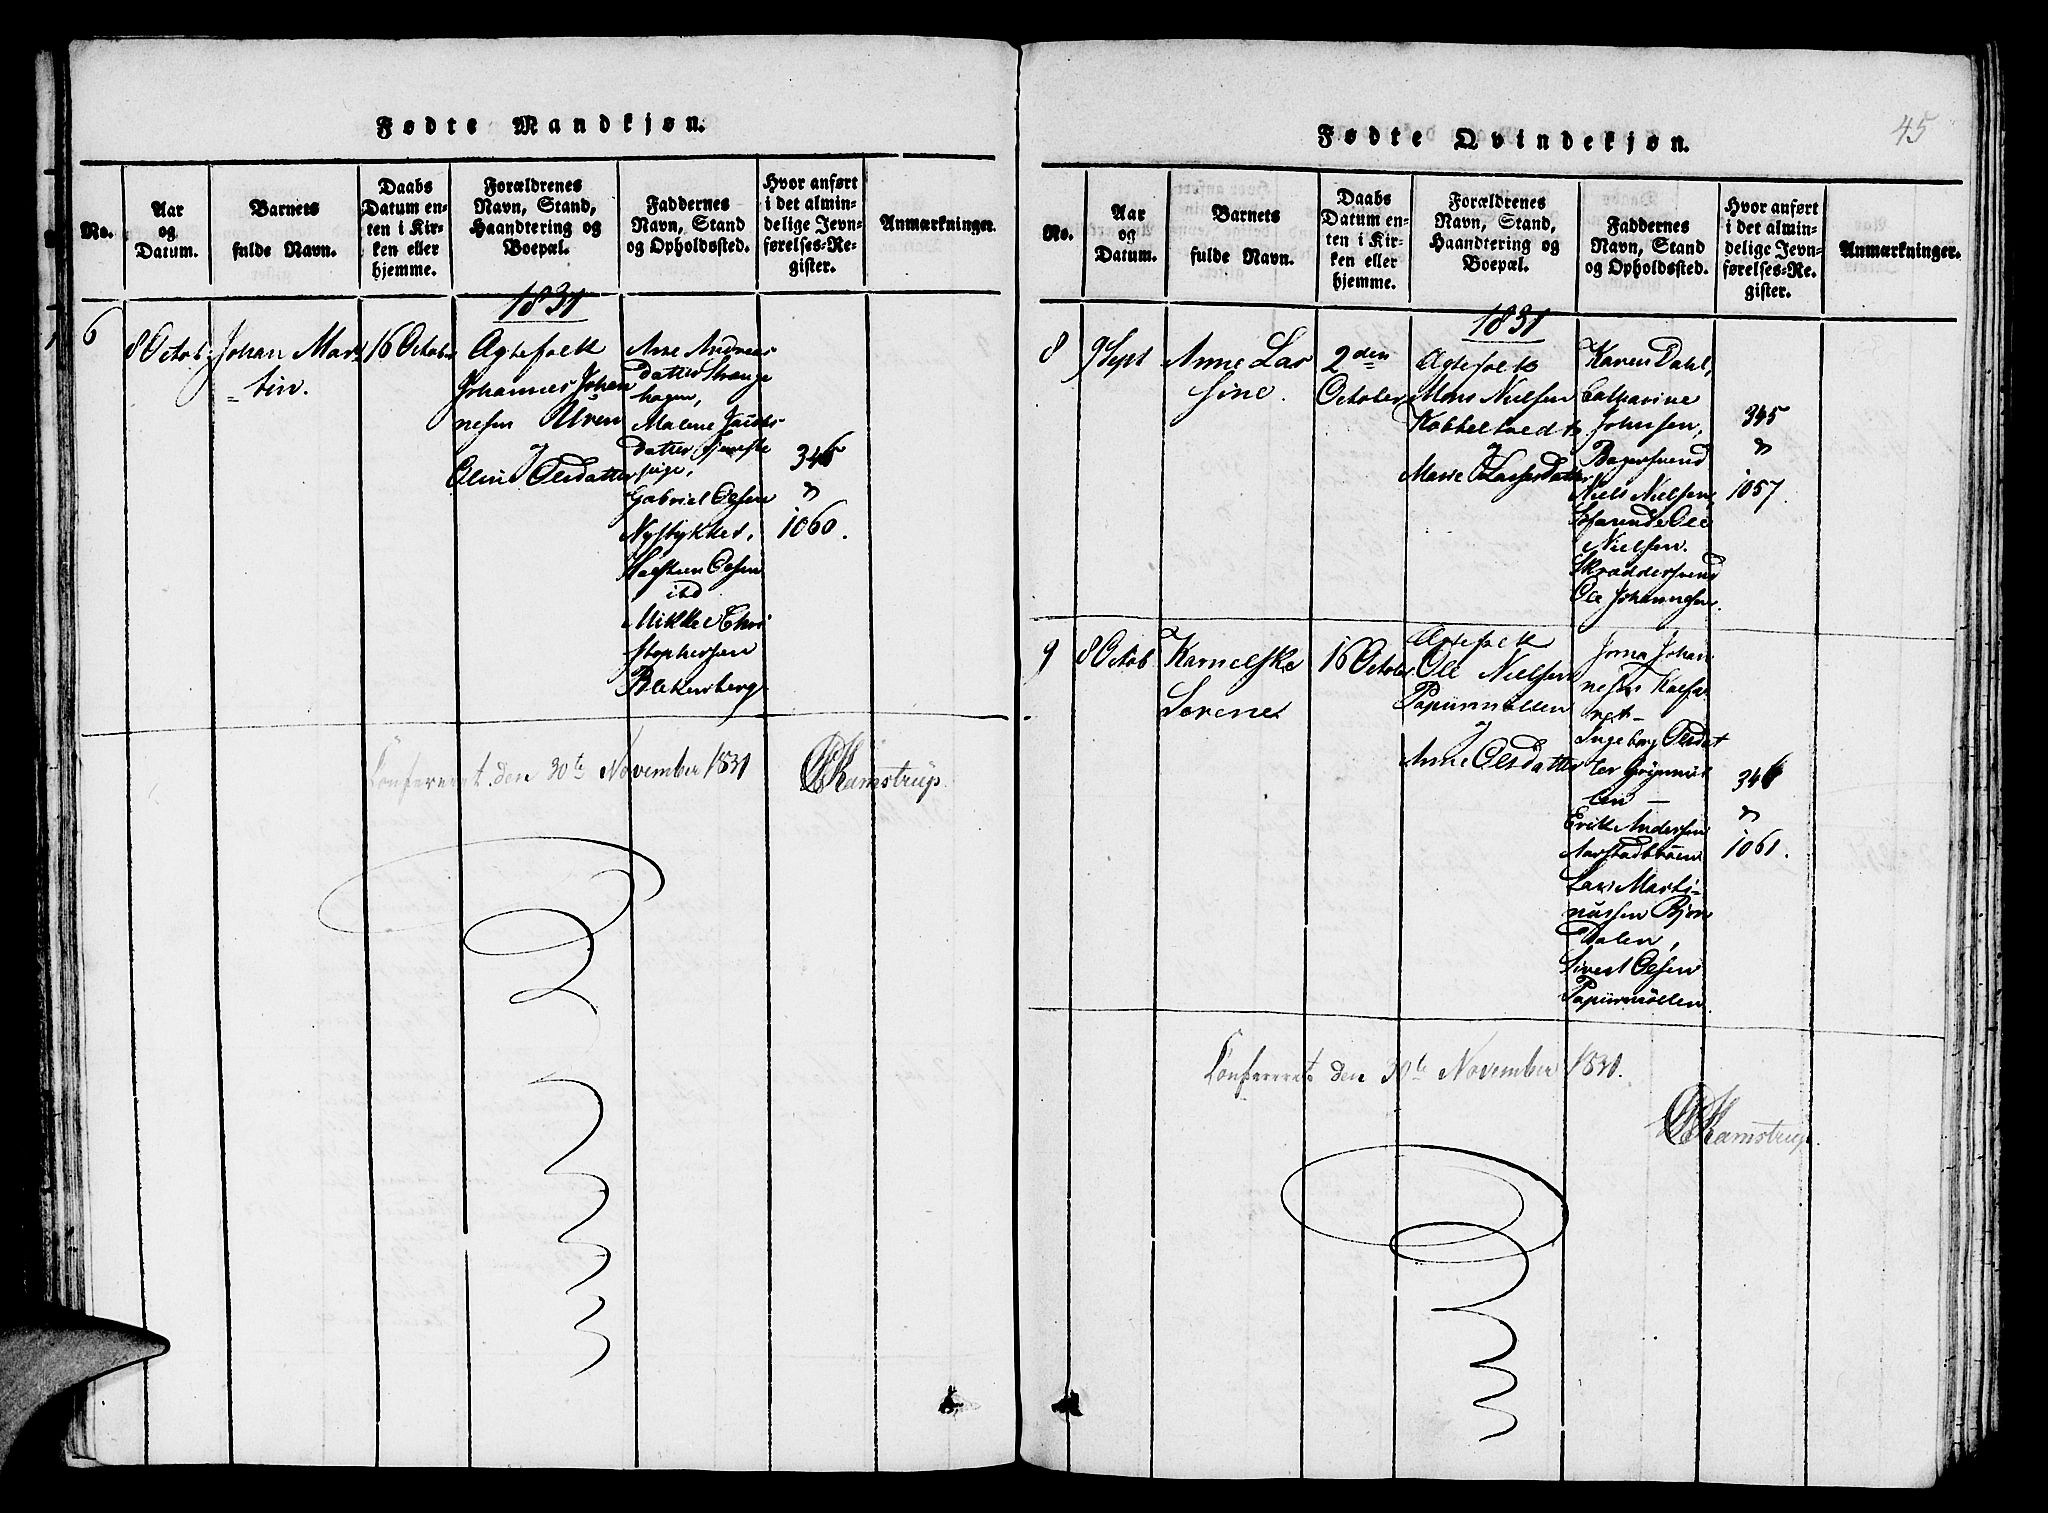 Fødte Mandkjøn.
No.
Aar
og
Datum.
Barnets
fulde Navn.
Daabs
Datum en-
ten i Kir-
ken eller
hjemme.
Forældrenes
Navn, Stand,
Haandtering og
Boepæl.
Faddernes
Navn, Stand
og Opholdssted.
Hvor anført
i det almin-
delige Jevn-
førelses-Re-
gister.
Anmærkninger.
1831
6
8 Octob.
Johan Mar
tin.
16 Octobr
Ægtefolk
Johannes Johan
nesen Ulven
og
Oline Olsdatter
Ane Andreas
datter Strange
hagen,
Malene Jacobs
datter, Tjeneste
pige,
Gabriel Olsen
Nystykket,
Olsen
ibd
Mikkel Chri
stophersen
Blekenberg
346
og
1060.
Confereret den 30te November 1831
Kamstrup
Fødte Qvindekjøn.
45
No.
Aar
og
Datum.
Barnets
fulde Navn.
Daabs
Datum en-
ten i Kir-
ken eller
hjemme.
Forældrenes
Navn, Stand,
Haandtering og
Boepæl.
Faddernes
Navn, Stand
og Opholdssted.
Hvor anført
i det almin-
delige Jevn-
førelses-Re-
gister.
Anmærkninger.
1831
8
9 Sept
Anne Las
sine.
2den
October
Ægtefolk
Mons Nielsen
Kobbeltvedt
og
Marie Lassesdatter
Karen Dahl,
Catharine
Johnsen,
Bagersvend
Niels Nielsen,
Søfarende Ole
Nielsen.
Skræddersvend
Ole Johannesen.
345
og
1057.
9
8 Octob
Karnelske
Sørene.
16 October
Ægtefolk
Ole Nielsen
Papiirmøllen
og
Anne Olsdatter
Johan
nesen Kalfa
ret
Ingeborg Olsdat
ter
Erik Andersen
Aarstadbrøen
Lars Marti-
nussen Bjørn
dalen,
Sivert Olsen
Papiirmøllen.
346
og
1061.
Confereret den 30te November 1831.
Kamstrup.